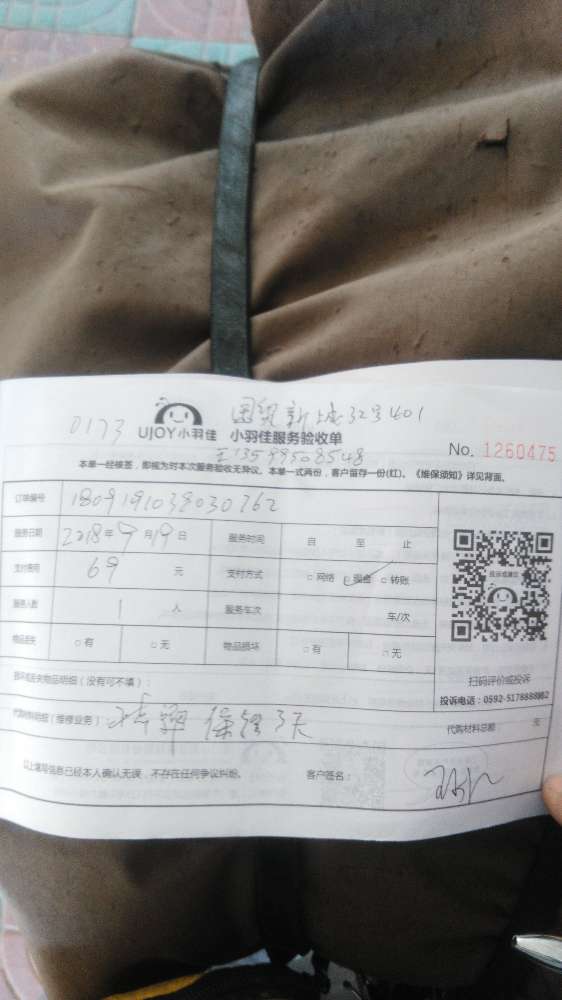 0173
国贸新城32号401
UJOY小羽佳 小羽佳服务验收单
王13599508548
No. 1260475
本单一经接签,即视为对本次服务验收无异议。本单一式两份,客户留存一份(红)。《维保须知》详见背面。
订单编号 1809191038030762
服务日期 2018年9月19日 服务时间 自 至 止
支付费用 69 元 支付方式 □网络 □现金 □转账
服务人数 1 人 服务车次 车/次
物品丢失 □有 □无 物品损坏 □有 □无
投诉或建议
扫码评价或投诉
投诉电话:0592-5178888
损坏或丢失物品明细(没有可不填):
代购材料明细(维修业务): 保修3天
代购材料总额: 元
以上填写信息已经本人确认无误,不存在任何争议纠纷。 客户签名: